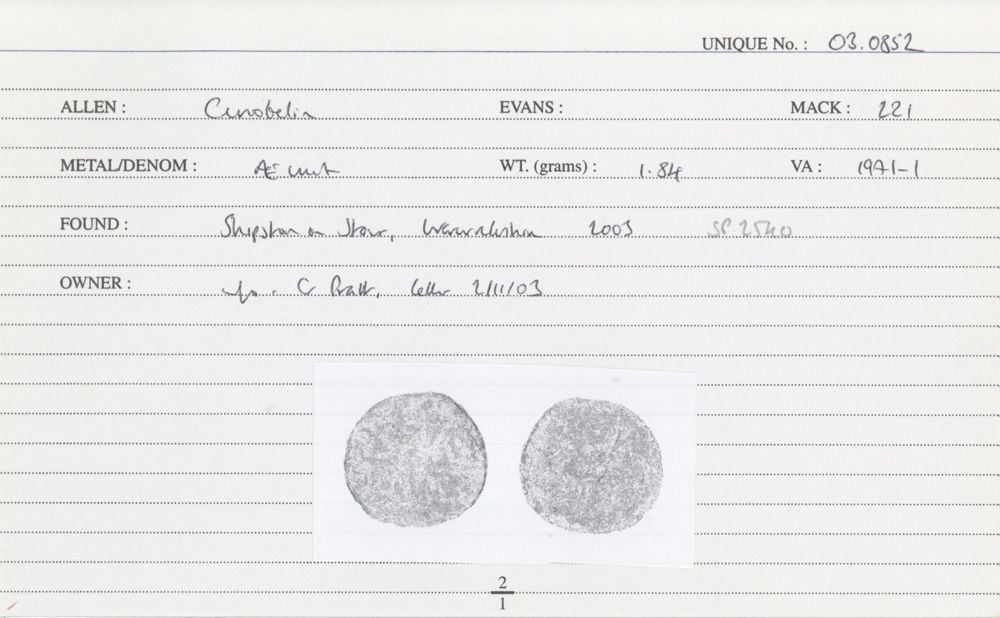 UNIQUE No. : 03.0852
ALLEN : Cunobelin EVANS : MACK : 221
METAL/DENOM : Æ unit WT. (grams) : 1.84 VA : 1971-1
FOUND : Shipston on Stour, Warwickshire 2003 SP 2540
OWNER : C Pratt, letter 2/11/03
2
1